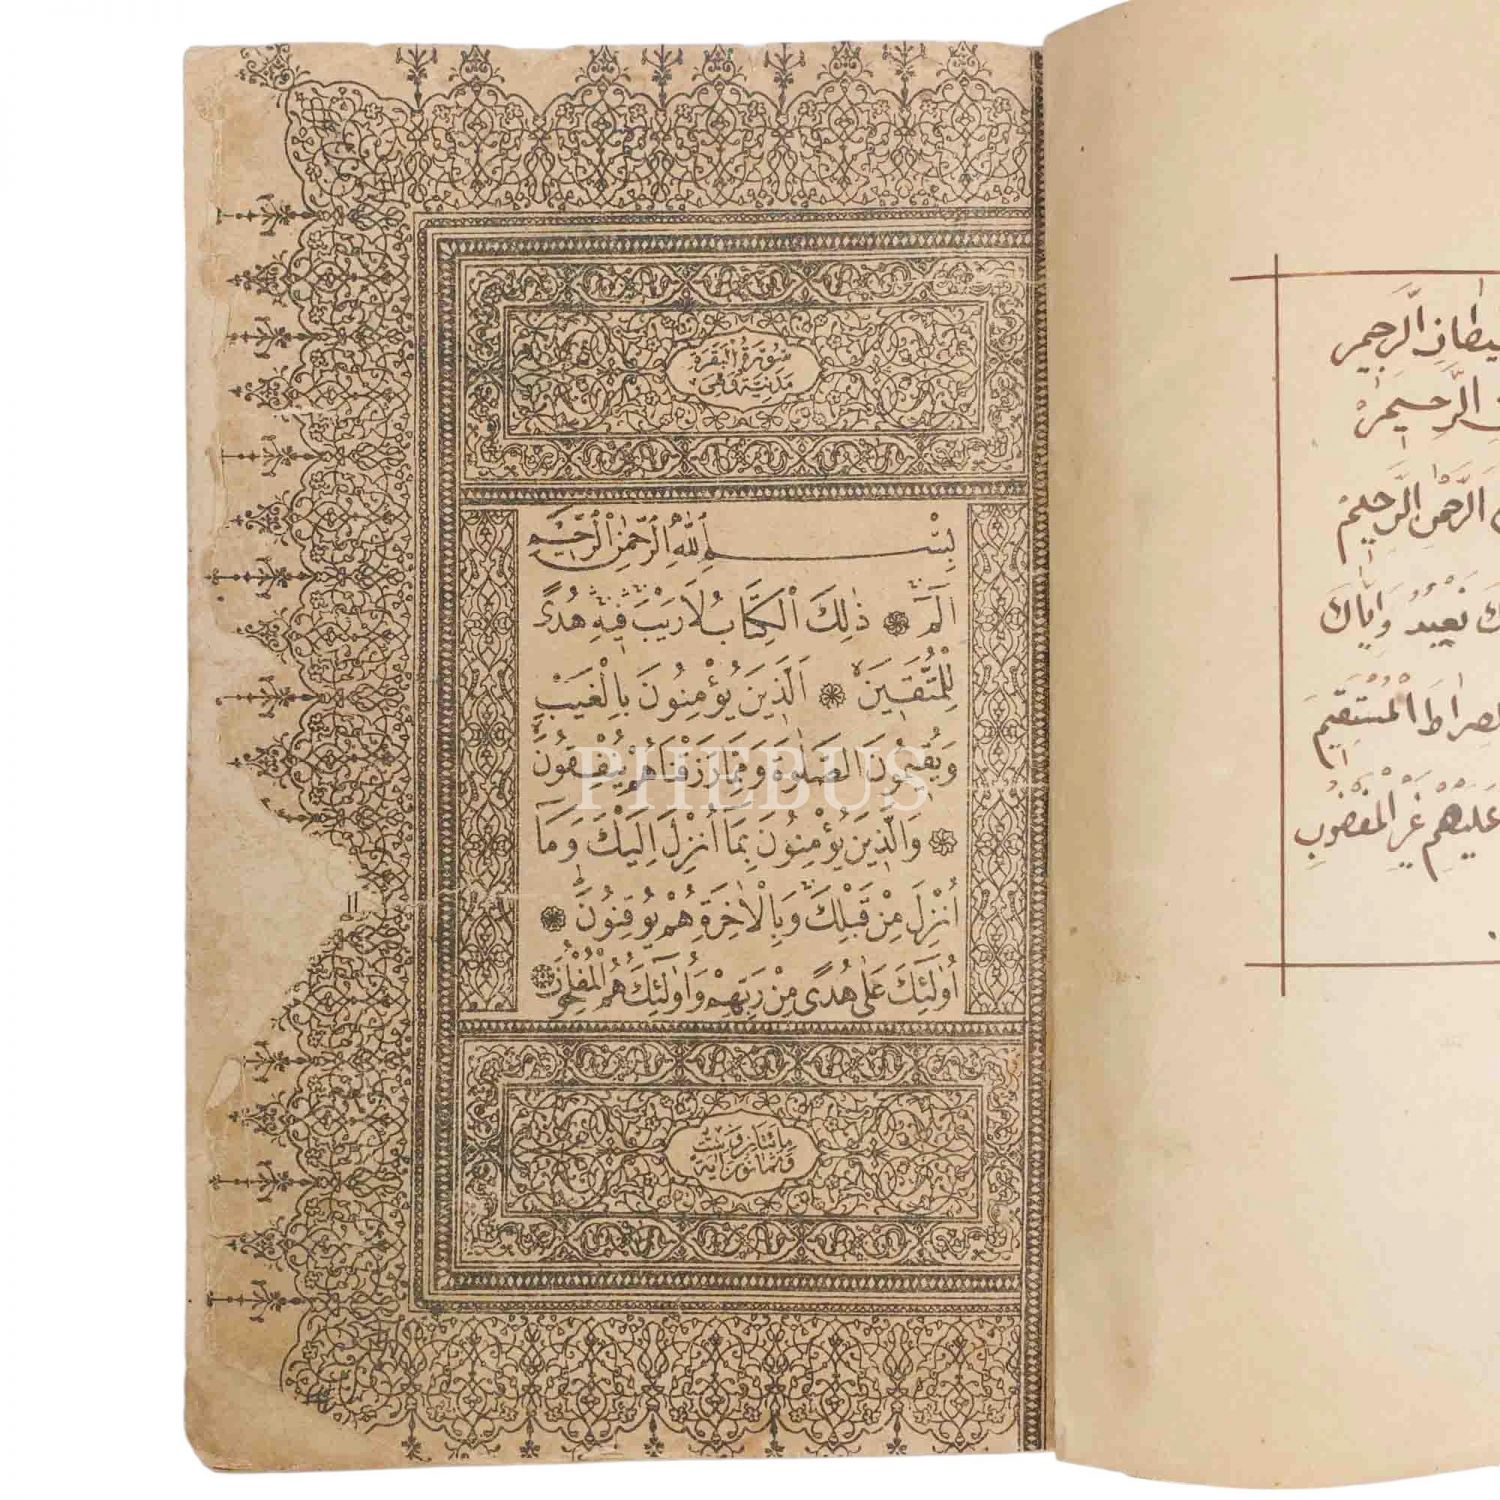 سُورَةُ الْبَقَرَةِ
مَدَنِيَّة وَهِيَ
بِسْمِ اللّٰهِ الرَّحْمٰنِ الرَّحِيمِ
الٓمٓ ذٰلِكَ الْكِتَابُ لَا رَيْبَ فِيهِ هُدًى
لِلْمُتَّقِينَ اَلَّذِينَ يُؤْمِنُونَ بِالْغَيْبِ
وَيُقِيمُونَ الصَّلٰوةَ وَمِمَّا رَزَقْنَاهُمْ يُنْفِقُونَ
وَالَّذِينَ يُؤْمِنُونَ بِمَا اُنْزِلَ اِلَيْكَ وَمَا
اُنْزِلَ مِنْ قَبْلِكَ وَبِالْاٰخِرَةِ هُمْ يُوقِنُونَ
اُولٰئِكَ عَلٰى هُدًى مِنْ رَبِّهِمْ وَاُولٰئِكَ هُمُ الْمُفْلِحُونَ
مائتان وست
وثمانون اية
PHEBUS
الرَّجِيمِ
الرَّحِيمِ
الرَّحْمٰنِ الرَّحِيمِ
نَعْبُدُ وَاِيَّاكَ
الْمُسْتَقِيمَ
عَلَيْهِمْ غَيْرِ الْمَغْضُوبِ